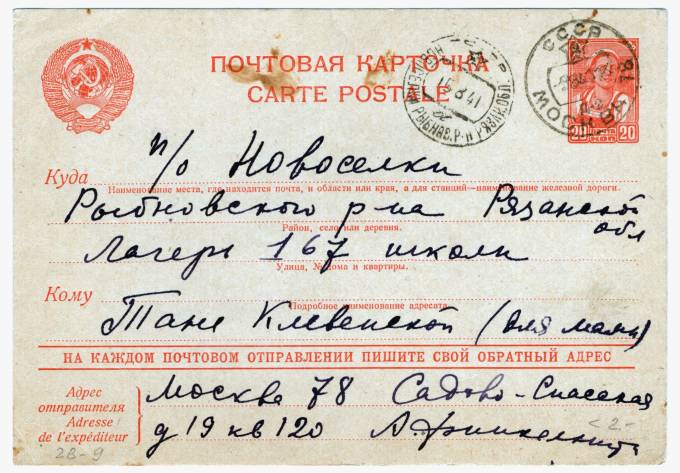 ПОЧТОВАЯ КАРТОЧКА
CARTE POSTALE
СССР
МОСКВА
14 8 41
20 КОП 20
Куда п/о Новоселки
Наименование места, где находится почта, и области или края, а для станций—наименование железной дороги.
Рыбновского р-на Рязанской обл
Район, село или деревня.
Лагерь 167 школы
Улица, № дома и квартиры.
Кому
Подробное наименование адресата.
Тане Клевенской (для мамы)
НА КАЖДОМ ПОЧТОВОМ ОТПРАВЛЕНИИ ПИШИТЕ СВОЙ ОБРАТНЫЙ АДРЕС
Адрес отправителя
Adresse de l'expéditeur
Москва 78 Садово-Спасская
д 19 кв 120
28-9
-2-